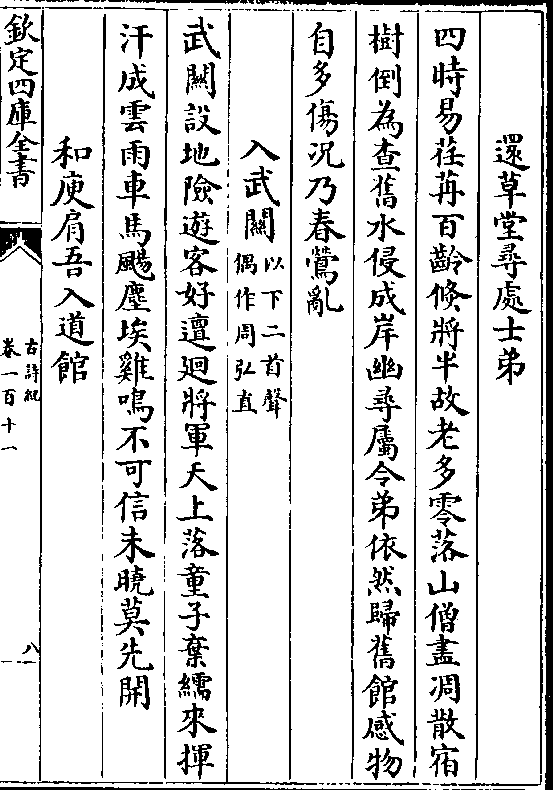 還草堂尋處士弟
四時易荏苒百齡倐將半故老多零落山僧盡凋散宿
樹倒為查舊水侵成岸幽尋屬令弟依然歸舊館感物
自多傷況乃春鶯亂
入武關以下二首聲
偶作周弘直
武關設地險遊客好邅迴將軍天上落童子棄繻來揮
汗成雲雨車馬颺塵埃雞鳴不可信未曉莫先開
和庾肩吾入道館
欽定四庫全書
古詩紀
卷一百十一
八